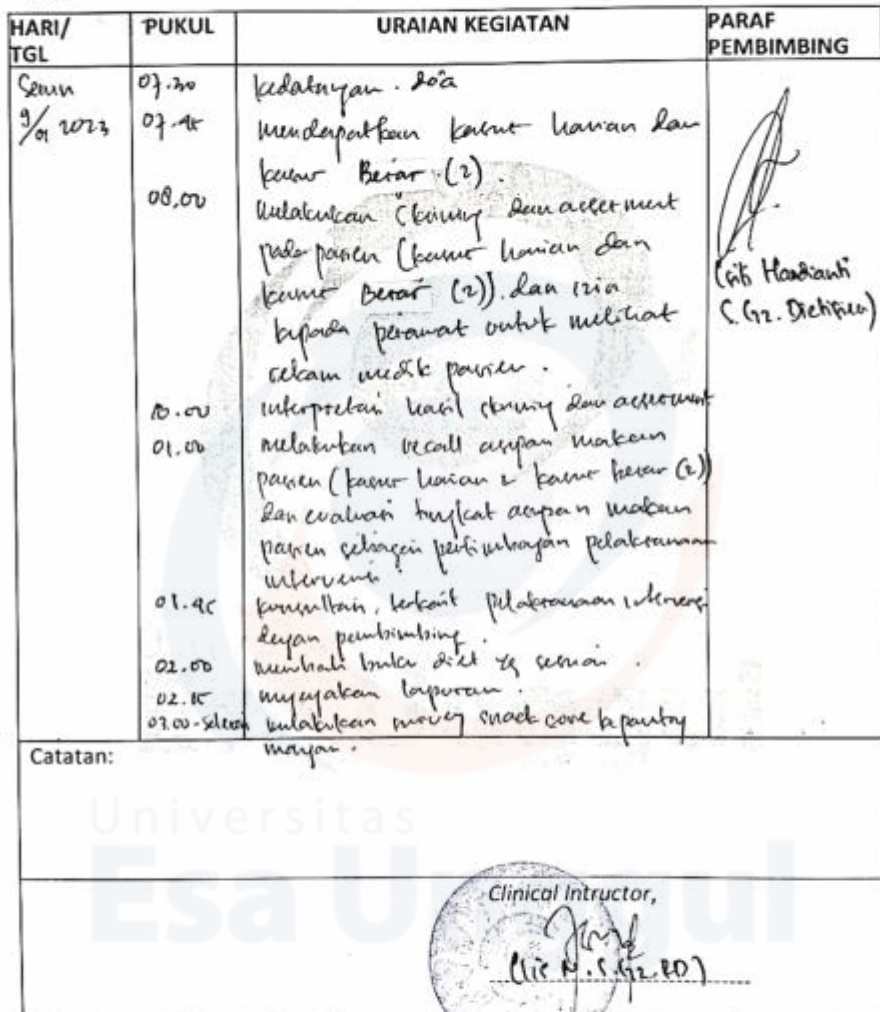 HARI/ TGL PUKUL URAIAN KEGIATAN PARAF PEMBIMBING
Senin 07.30 kedatangan. do'a
9/01 2023 07.45 mendapatkan kasus harian dan
kasus Besar (2).
08.00 melakukan skrining dan assesment
pada pasien (kasus harian dan
kasus Besar (2)). dan izin
kepada perawat untuk melihat
rekam medik pasien.
(Siti Hardianti
S.Gz. Dietisien)
10.00 interpretasi hasil skrining dan assesment
01.00 melakukan recall asupan makan
pasien (kasus harian & kasus besar (2))
dan evaluasi tingkat asupan makan
pasien sebagai pertimbangan pelaksanaan
intervensi.
01.45 konsultasi, terkait pelaksanaan intervensi
dengan pembimbing.
02.00 buku diet yg sesuai.
02.15 laporan.
03.00-selesai melakukan snack sore
Catatan:
Universitas
Esa Unggul
Clinical Intructor,
(Iis N. S.Gz. RD)